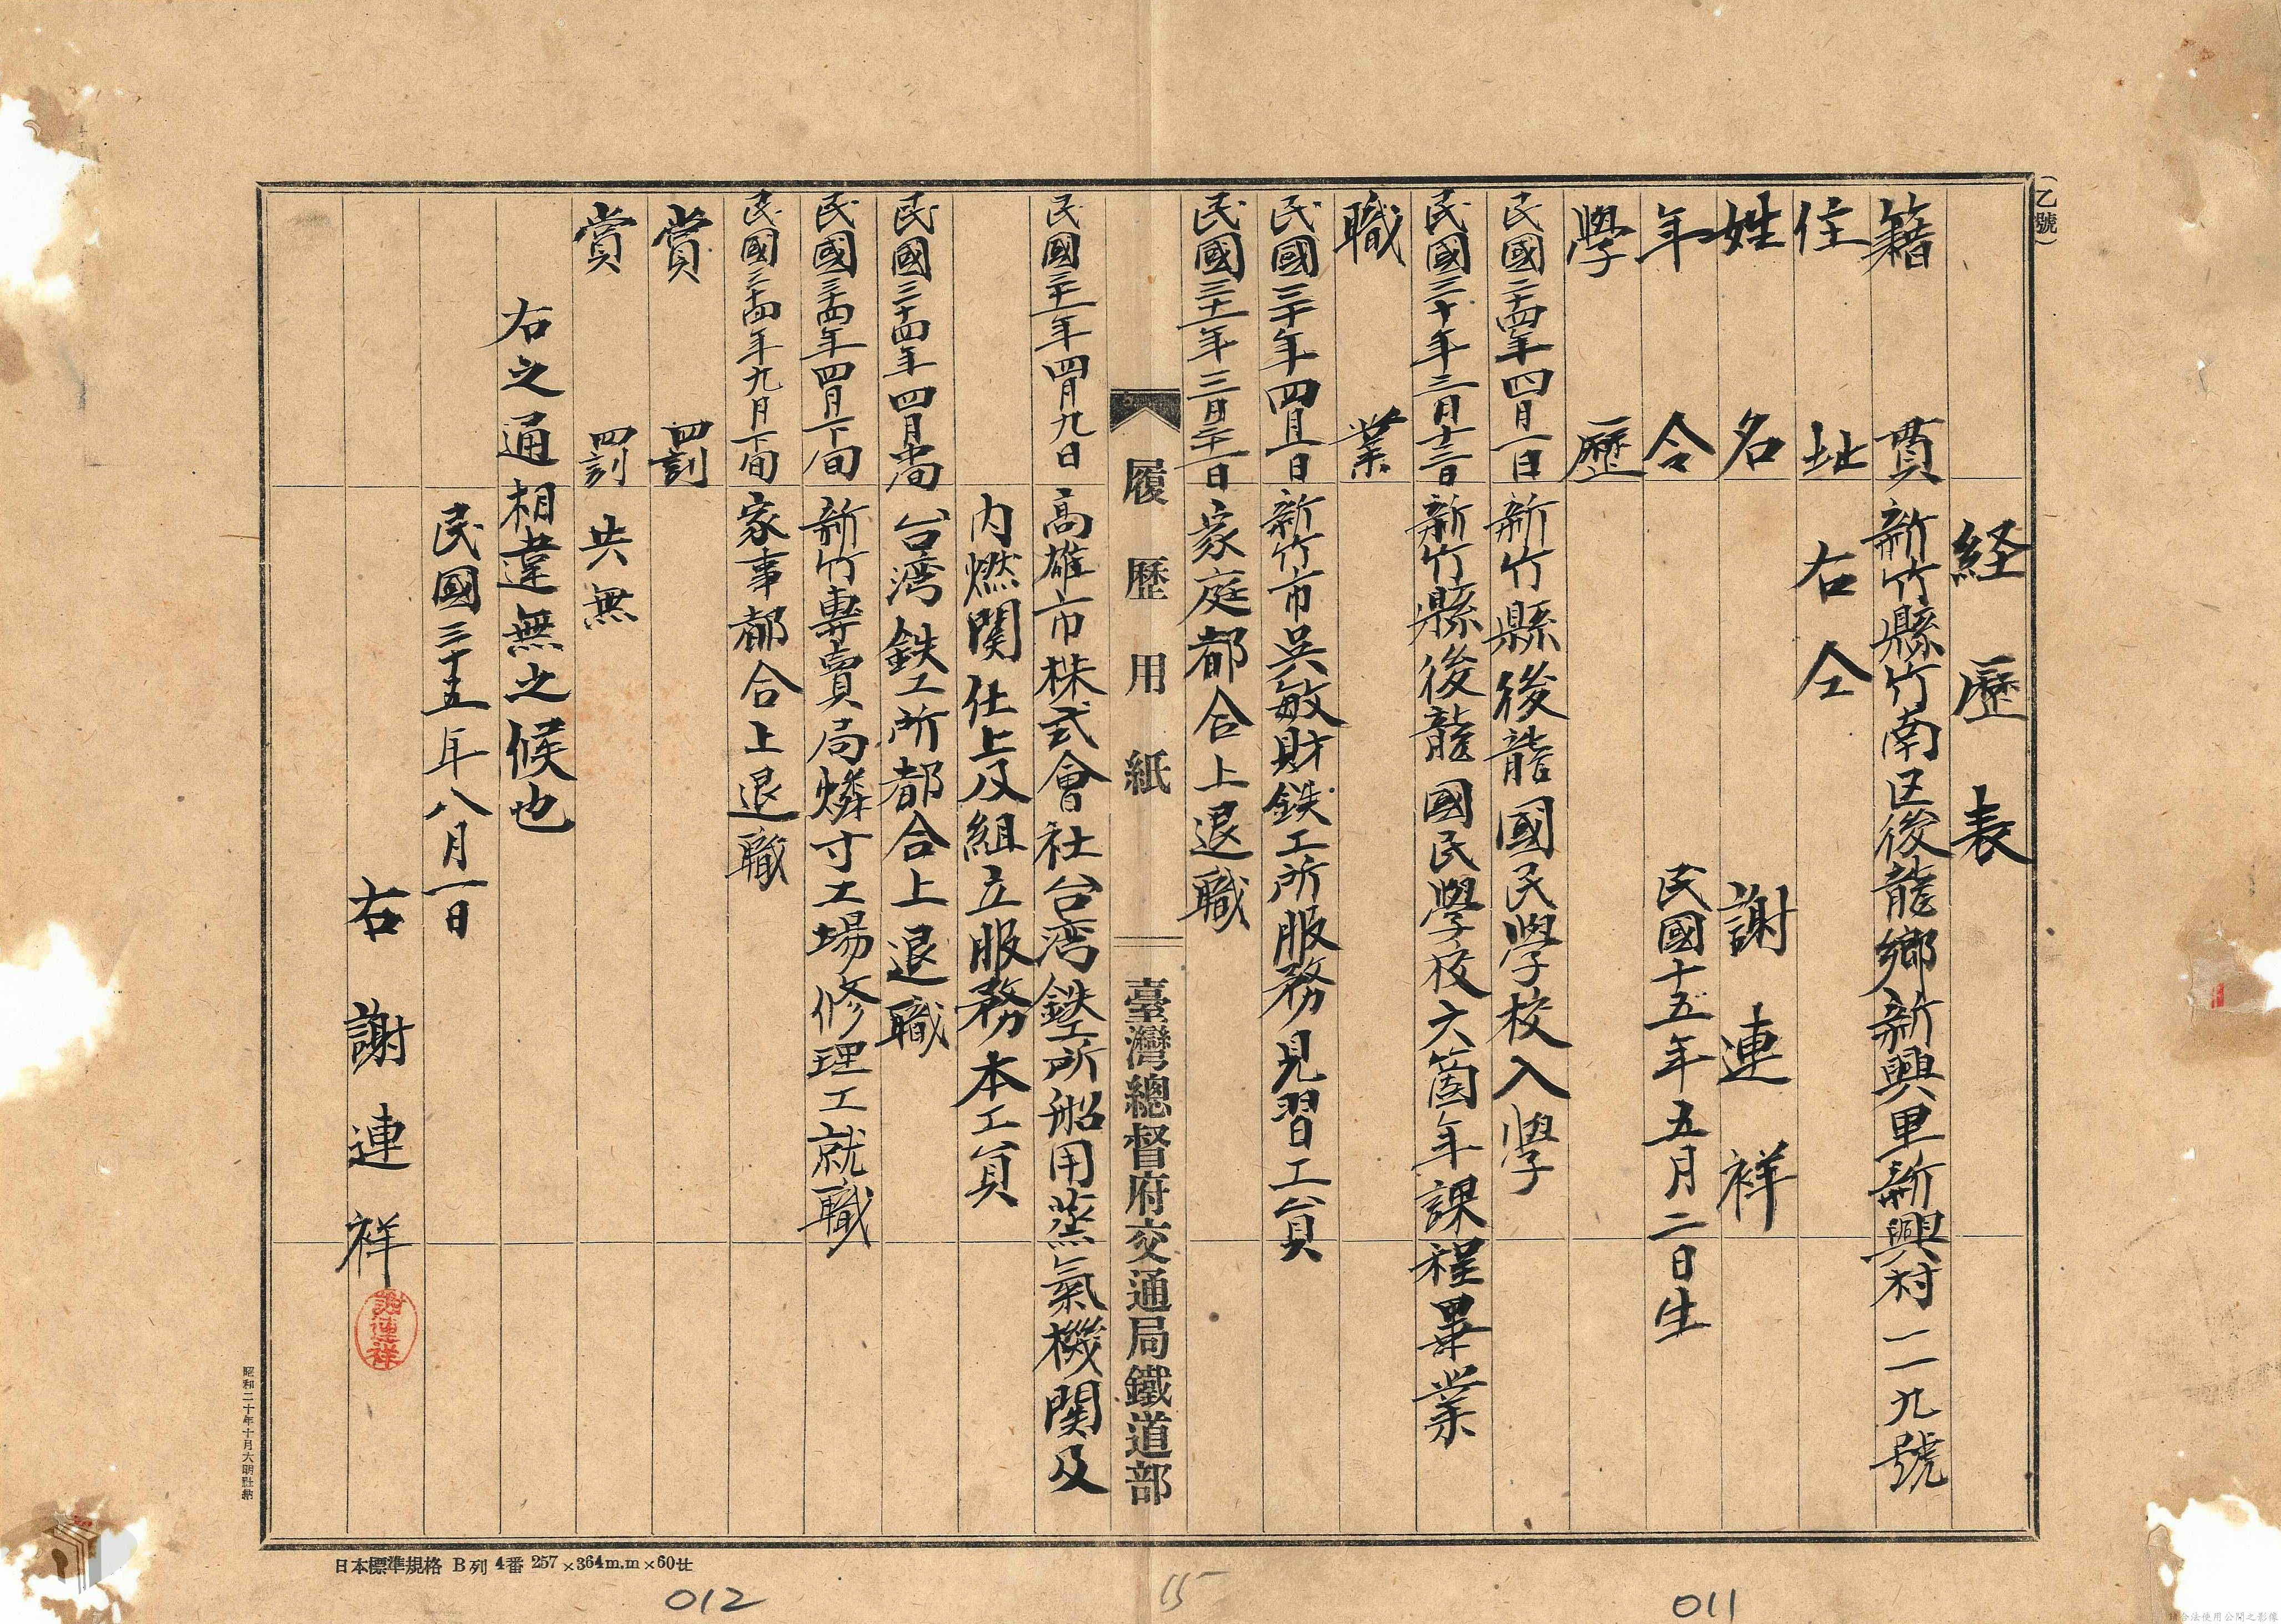 (乙號)
経歷表
籍貫 新竹縣竹南区後龍鄉新興里新興村一一九號
住址 右仝
姓名 謝連祥
年令 民國十五年五月二日生
學歷
民國二十四年四月一日 新竹縣後龍國民學校入學
民國三十年三月十三日 新竹縣後龍國民學校六箇年課程畢業
職業
民國三十年四月一日 新竹市吳敏財鉄工所服務見習工員
民國三十一年三月三十一日 家庭都合上退職
履歷用紙 臺灣總督府交通局鐵道部
民國三十一年四月九日 高雄市株式會社台湾鉄工所船用蒸氣機関及
内燃関仕上及組立服務本工員
民國三十四年四月中旬 台湾鉄工所都合上退職
民國三十四年四月下旬 新竹專賣局燐寸工場修理工就職
民國三十四年九月下旬 家事都合上退職
賞罰
賞罰共無
右之通相違無之候也
民國三十五年八月一日
右 謝連祥
謝連祥
昭和二十年十月大明社納
日本標準規格 B列 4番 257×364m.m×60廿
012
15
011